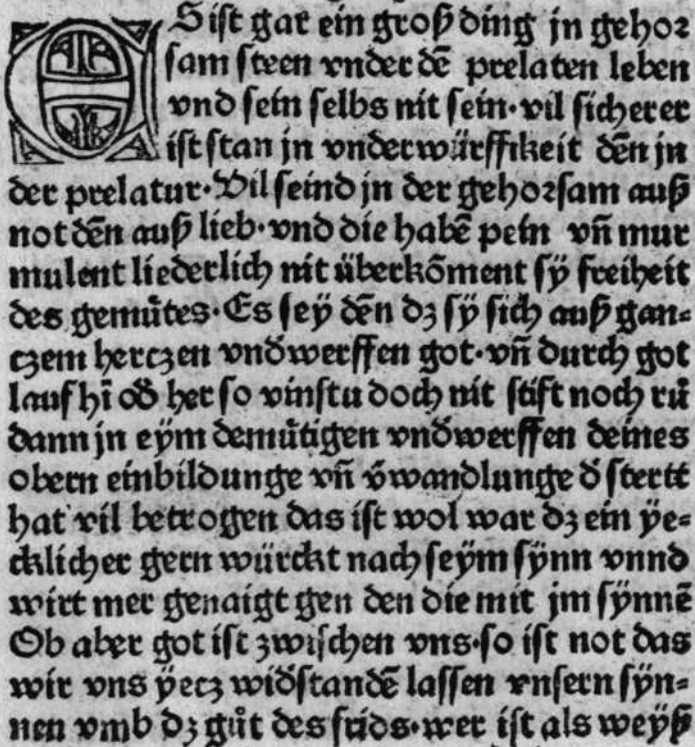 ES ist gar ein groß ding jn gehor
sam steen vnder dē prelaten leben
vnd sein selbs nit sein·vil sicherer
ist stan jn vnderwürffikeit dēn jn
der prelatur·Vil seind jn der gehorsam auß
not dēn auß lieb·vnd die habē pein vn̄ mur
mulent liederlich nit überkōment sÿ freiheit
des gemuͤtes·Es seÿ dēn dz sÿ sich auß gan⸗
czem herczen vnd̓werffen got·vn̄ durch got
lauf hī od̓ her so vinstu doch nit stift noch ruͦ
dann jn eÿm demuͤtigen vnd̓werffen deines
obern einbildunge vn̄ v̓wandlunge d̓ stertt
hat vil betrogen das ist wol war dz ein ÿe⸗
cklicher gern würckt nach seÿm sÿnn vnnd
wirt mer genaigt gen den die mit jm sÿnnē
Ob aber got ist zwischen vns·so ist not das
wir vns ÿecz wid̓standē lassen vnsern sÿn⸗
nen vmb dz guͦt des frids·wer ist als weÿß